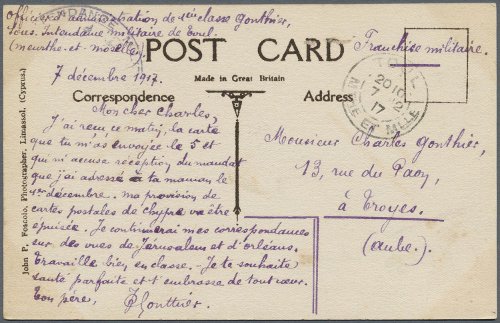 Officier d'administration de 1ère classe Gonthier,
Sous. Intendance militaire de Toul.
(Meurthe-et-Moselle)
Franchise militaire.
POST CARD
Made in Great Britain
7 décembre 1917.
Correspondence
Address
TOUL
20 10
7 12
17
MRTHE ET MLLE
Mon cher Charles,
J'ai reçu ce matin, la carte
que tu m'as envoyée le 5 et
qui m'accuse réception du mandat
que j'ai adressé à ta maman le
1er décembre. ma provision de
cartes postales de Chypre va être
épuisée. Je continuerai mes correspondances
sur des vues de Jérusalem et d'orléans.
Travaille bien en classe. Je te souhaite
santé parfaite et t'embrasse de tout cœur.
Ton père, Gonthier.
Monsieur Charles Gonthier,
13, rue du Paon,
à Troyes.
(Aube.)
John P. Foscolo, Photographer, Limassol, (Cyprus.)